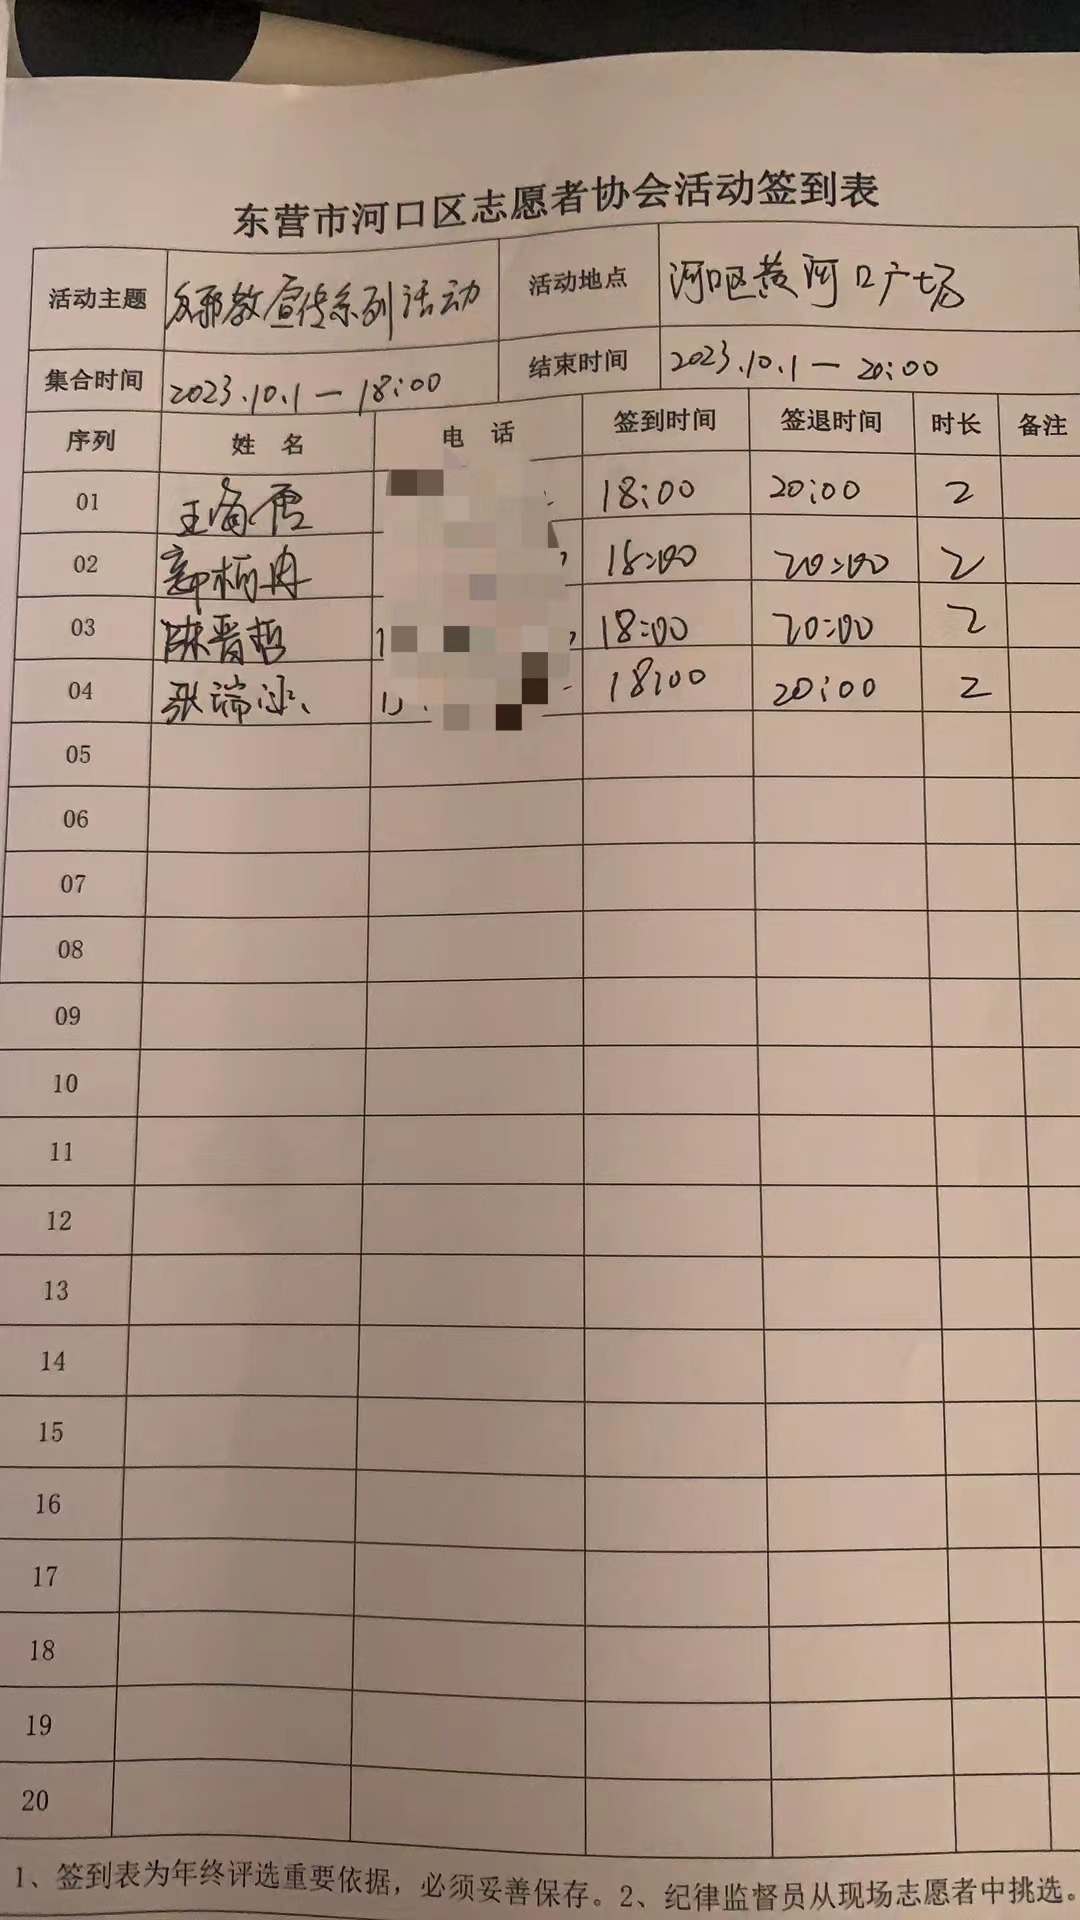 东营市河口区志愿者协会活动签到表
活动主题 反邪教宣传系列活动 活动地点 河口区黄河口广场
集合时间 2023.10.1 — 18:00 结束时间 2023.10.1 — 20:00
序列 姓 名 电 话 签到时间 签退时间 时长 备注
01 王 18:00 20:00 2
02 郭柄冉 18:00 20:00 2
03 陈晋哲 18:00 20:00 2
04 张瑞冰 18:00 20:00 2
05
06
07
08
09
10
11
12
13
14
15
16
17
18
19
20
1、签到表为年终评选重要依据，必须妥善保存。2、纪律监督员从现场志愿者中挑选。